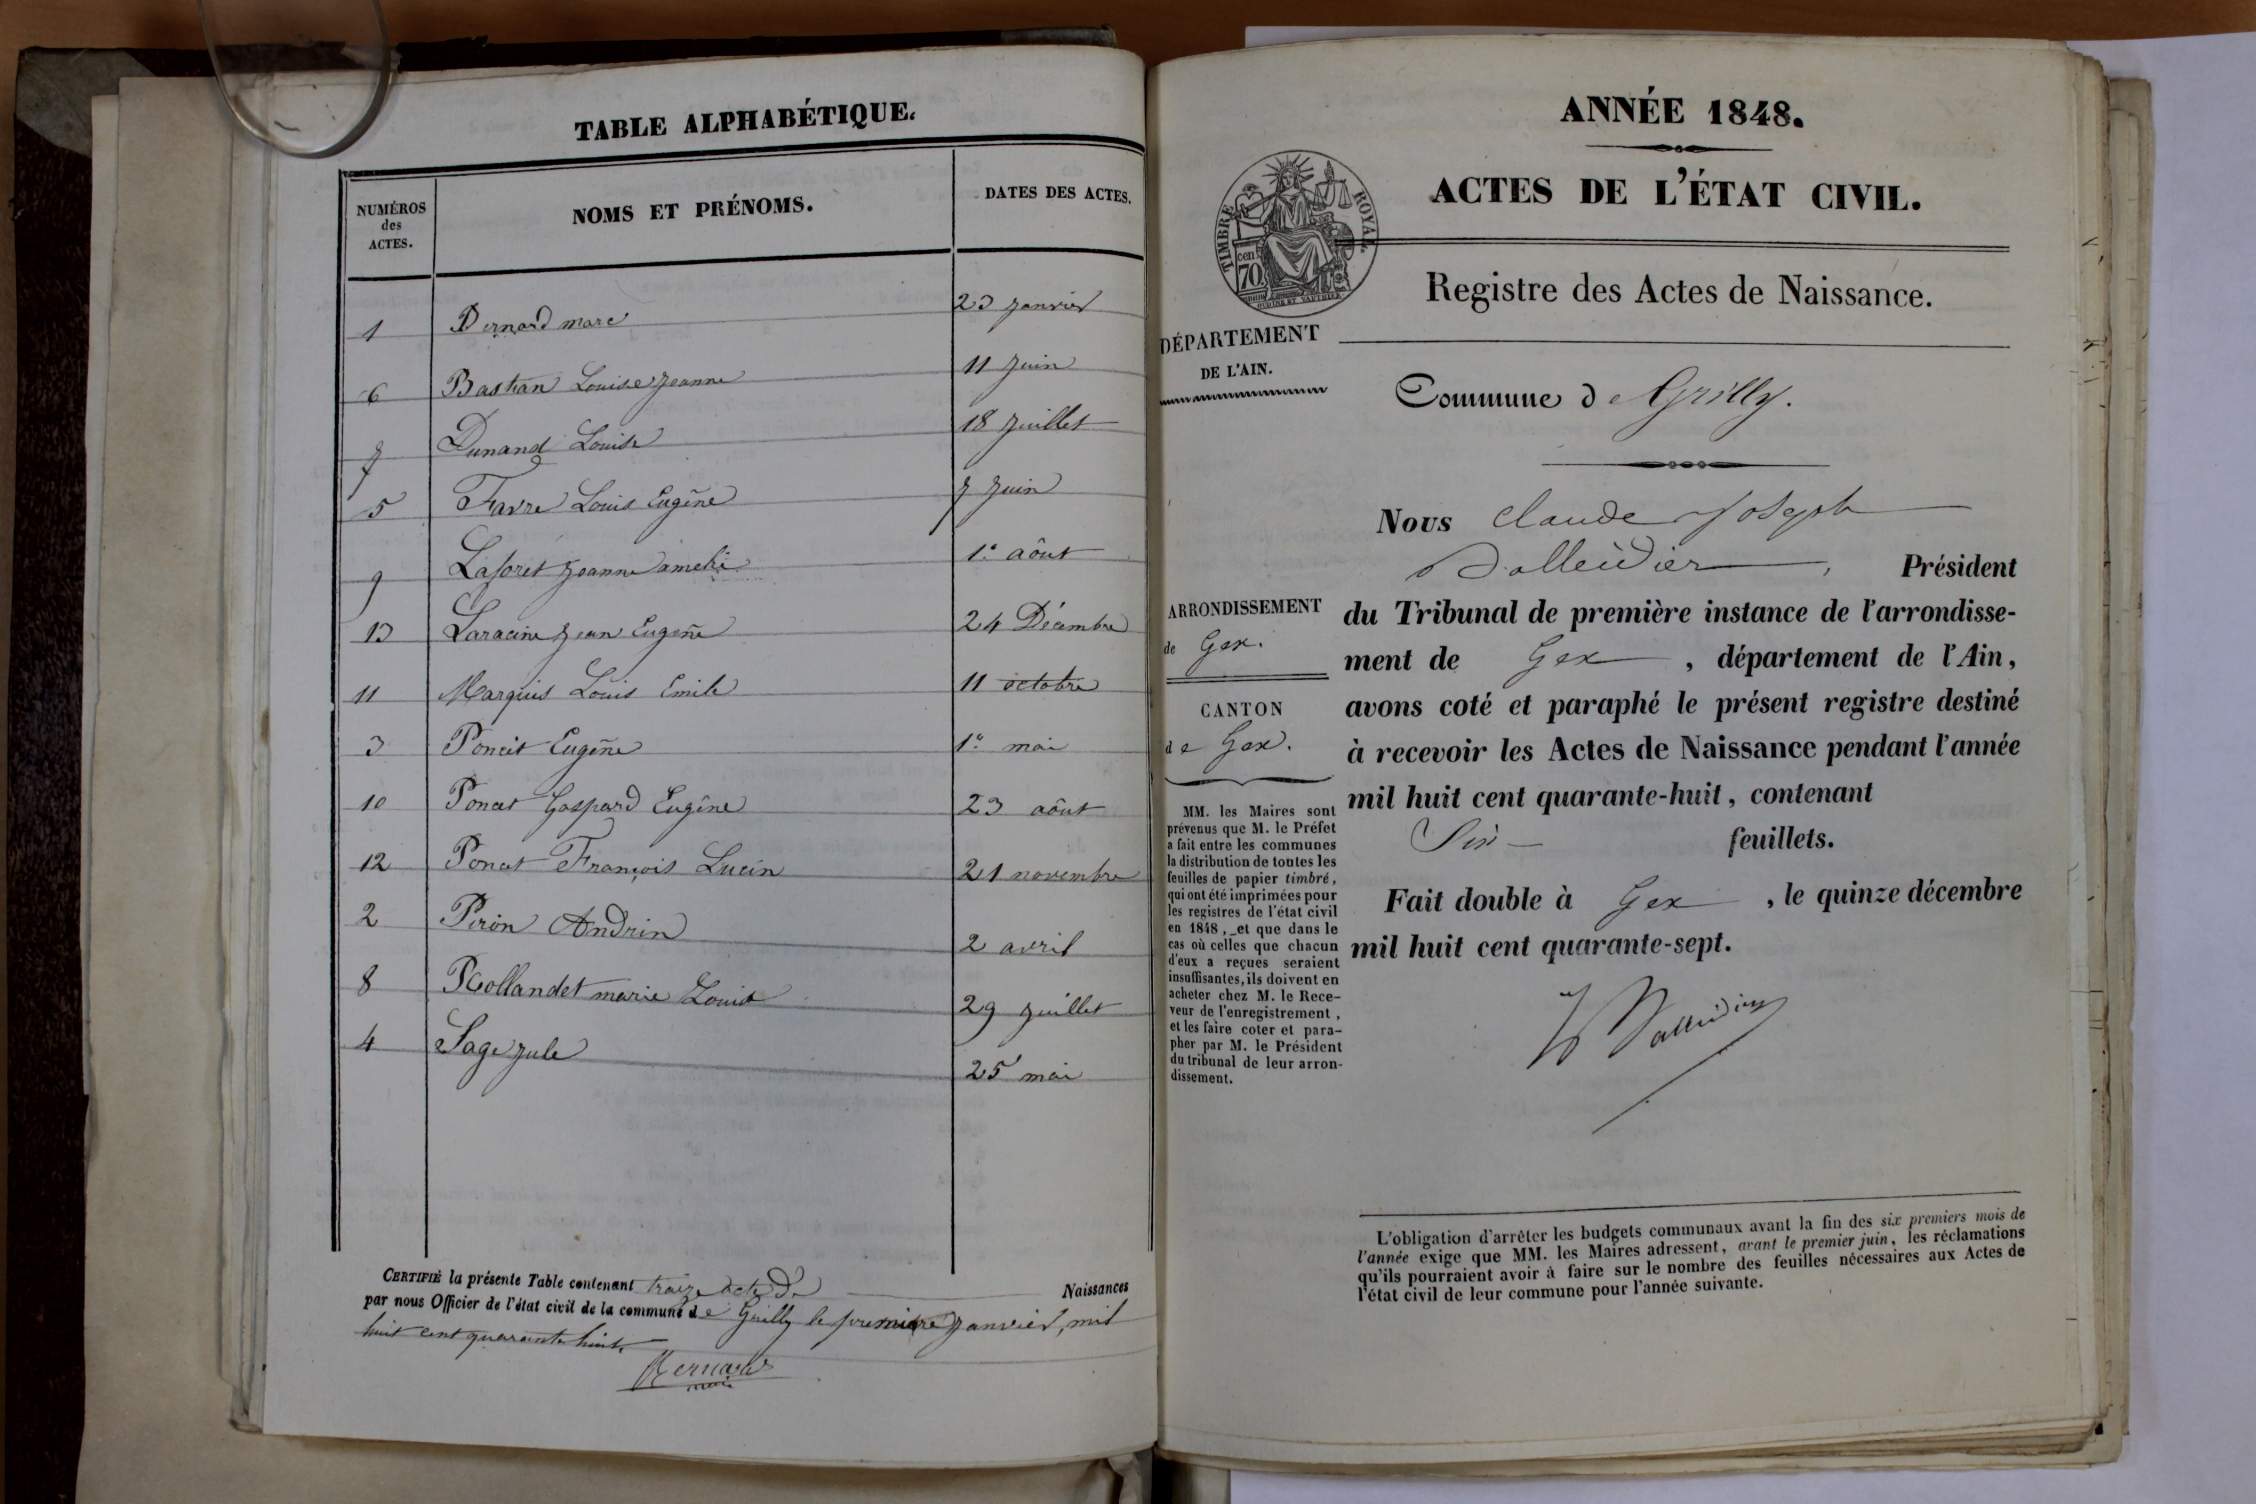 TABLE ALPHABÉTIQUE.
NUMÉROS des ACTES. NOMS ET PRÉNOMS. DATES DES ACTES.
1 Bernard marc 23 janvier
6 Bastian Louise jeanne 11 juin
7 Dunand Louise 18 juillet
5 Favre Louis Eugêne 7 juin
9 Laforet jeanne amelie 1er aôut
13 Laracine jean Eugêne 24 Décembre
11 Marquis Louis Emile 11 octobre
3 Poncet Eugêne 1er mai
10 Poncet Gaspard Eugêne 23 aôut
12 Poncet François Lucin 21 novembre
2 Piron Andrin 2 avril
8 Rollandet marie Louise 29 juillet
4 Sage jule 25 mai
CERTIFIÉ la présente Table contenant traize acte de Naissances
par nous Officier de l'état civil de la commune de Grilly le premiere janvier, mil
huit cent quarante huit.
Bernard
maire
ANNÉE 1848.
ACTES DE L'ÉTAT CIVIL.
TIMBRE ROYAL.
70 cen
Registre des Actes de Naissance.
DÉPARTEMENT
DE L'AIN.
Commune de Grilly.
ARRONDISSEMENT
de Gex.
CANTON
de Gex.
MM. les Maires sont
prévenus que M. le Préfet
a fait entre les communes
la distribution de toutes les
feuilles de papier timbré,
qui ont été imprimées pour
les registres de l'état civil
en 1848, et que dans le
cas où celles que chacun
d'eux a reçues seraient
insuffisantes, ils doivent en
acheter chez M. le Rece-
veur de l'enregistrement,
et les faire coter et para-
pher par M. le Président
du tribunal de leur arron-
dissement.
Nous Claude Joseph
Balleidier, Président
du Tribunal de première instance de l'arrondisse-
ment de Gex, département de l'Ain,
avons coté et paraphé le présent registre destiné
à recevoir les Actes de Naissance pendant l'année
mil huit cent quarante-huit, contenant
Six feuillets.
Fait double à Gex, le quinze décembre
mil huit cent quarante-sept.
Balleidier
L'obligation d'arrêter les budgets communaux avant la fin des six premiers mois de
l'année exige que MM. les Maires adressent, avant le premier juin, les réclamations
qu'ils pourraient avoir à faire sur le nombre des feuilles nécessaires aux Actes de
l'état civil de leur commune pour l'année suivante.